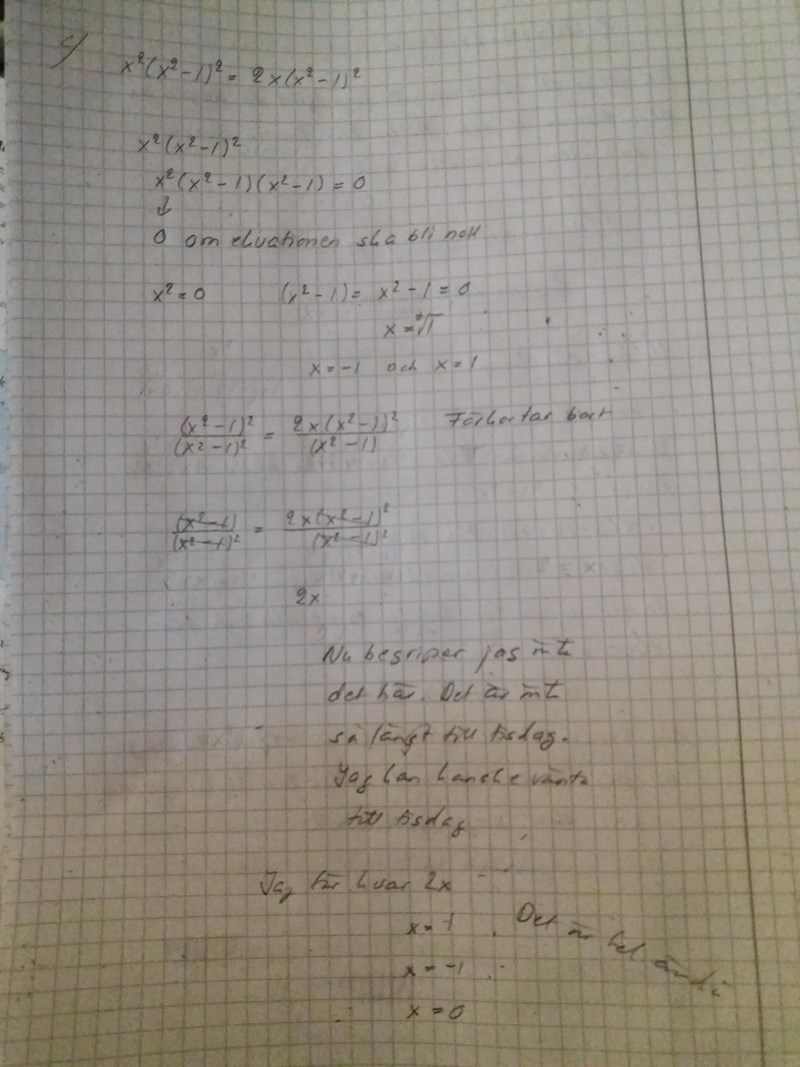 c)
x²(x²-1)² = 2x(x²-1)²
x²(x²-1)²
x²(x²-1)(x²-1) = 0
↓
0 om ekvationen ska bli noll
x² = 0 (x²-1) = x²-1 = 0
x = ±√1
x = -1 och x = 1
(x²-1)²/(x²-1)² = 2x(x²-1)²/(x²-1) Förkortar bort
(x²-1)/(x²-1)² = 2x(x²-1)²/(x²-1)²
2x
Nu begriper jag inte
det här. Det är inte
så långt till tisdag.
Jag kan kanske vänta
till tisdag
Jag får kvar 2x
x = 1
x = -1
x = 0
Det är fel ändå